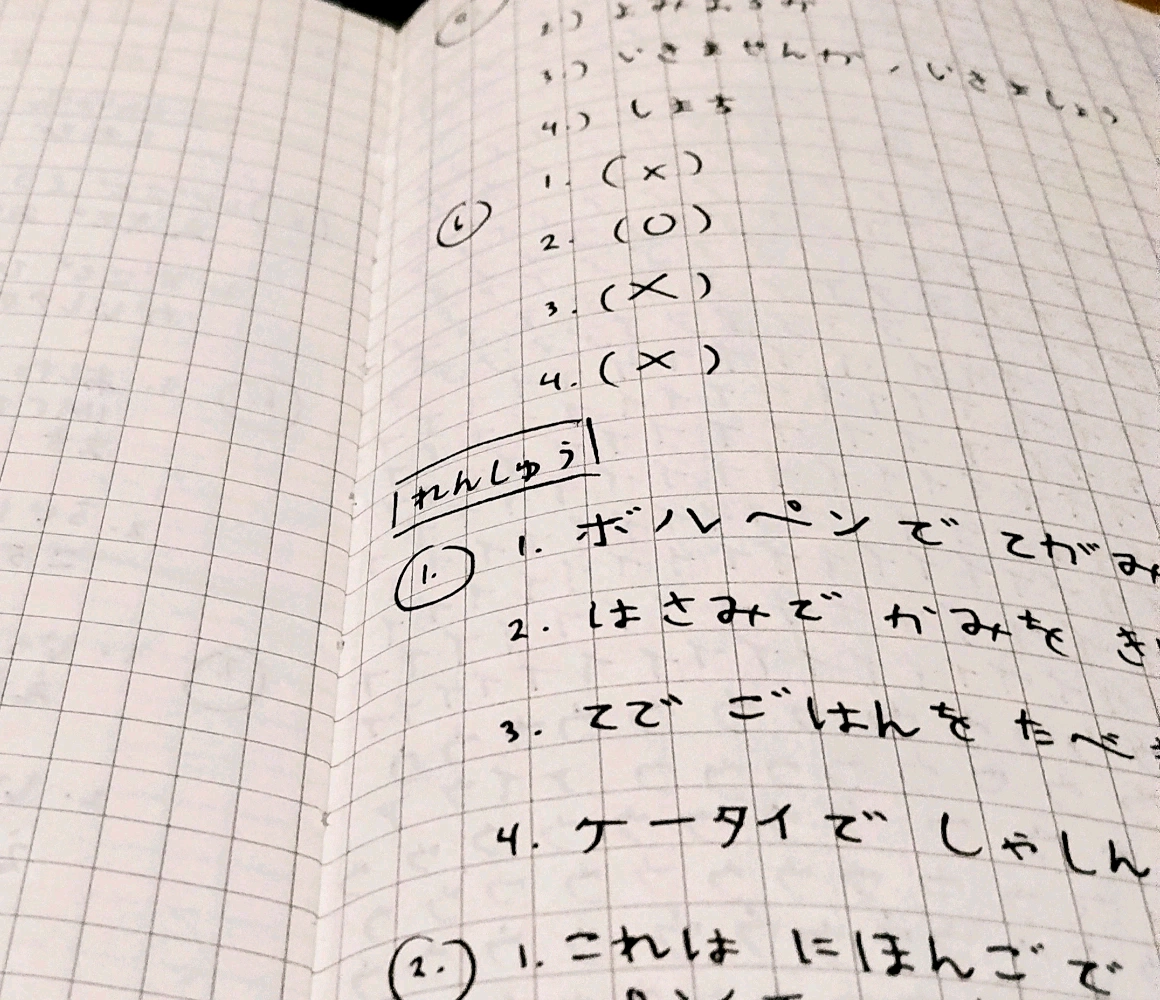 3.) いきませんか、いきましょう
4.)
1. (×)
⑥
2. (○)
3. (×)
4. (×)
れんしゅう
① 1. ボールペンで てがみ
2. はさみで かみを き
3. てで ごはんを たべ
4. ケータイで しゃしん
② 1. これは にほんごで